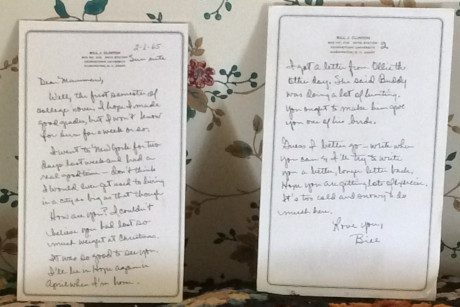 BILL J. CLINTON
GEORGETOWN UNIVERSITY
WASHINGTON, D. C. 20007
2-1-65
Dear Mammaw,
Well, the first semester of
college is over. I hope I made
good grades, but I won't know
for sure for a week or so.
I went to New York for two
days last week and had a
real good time - don't think
I would ever get used to living
in a city as big as that though.
How are you? I couldn't
believe you had lost so
much weight at Christmas.
It was so good to see you
I'll be in Hope again
April when I'm home.
BILL J. CLINTON
GEORGETOWN UNIVERSITY
WASHINGTON, D. C. 20007
2
I got a letter from Ollie the
other day. She said Buddy
was doing a lot of hunting.
you ought to make him give
you one of his birds.
Guess I better go - write when
you can & I'll try to write
you a better, longer letter back.
Hope you are getting lots of exercise.
It's too cold and snowy to do
much here.
Love you,
Bill